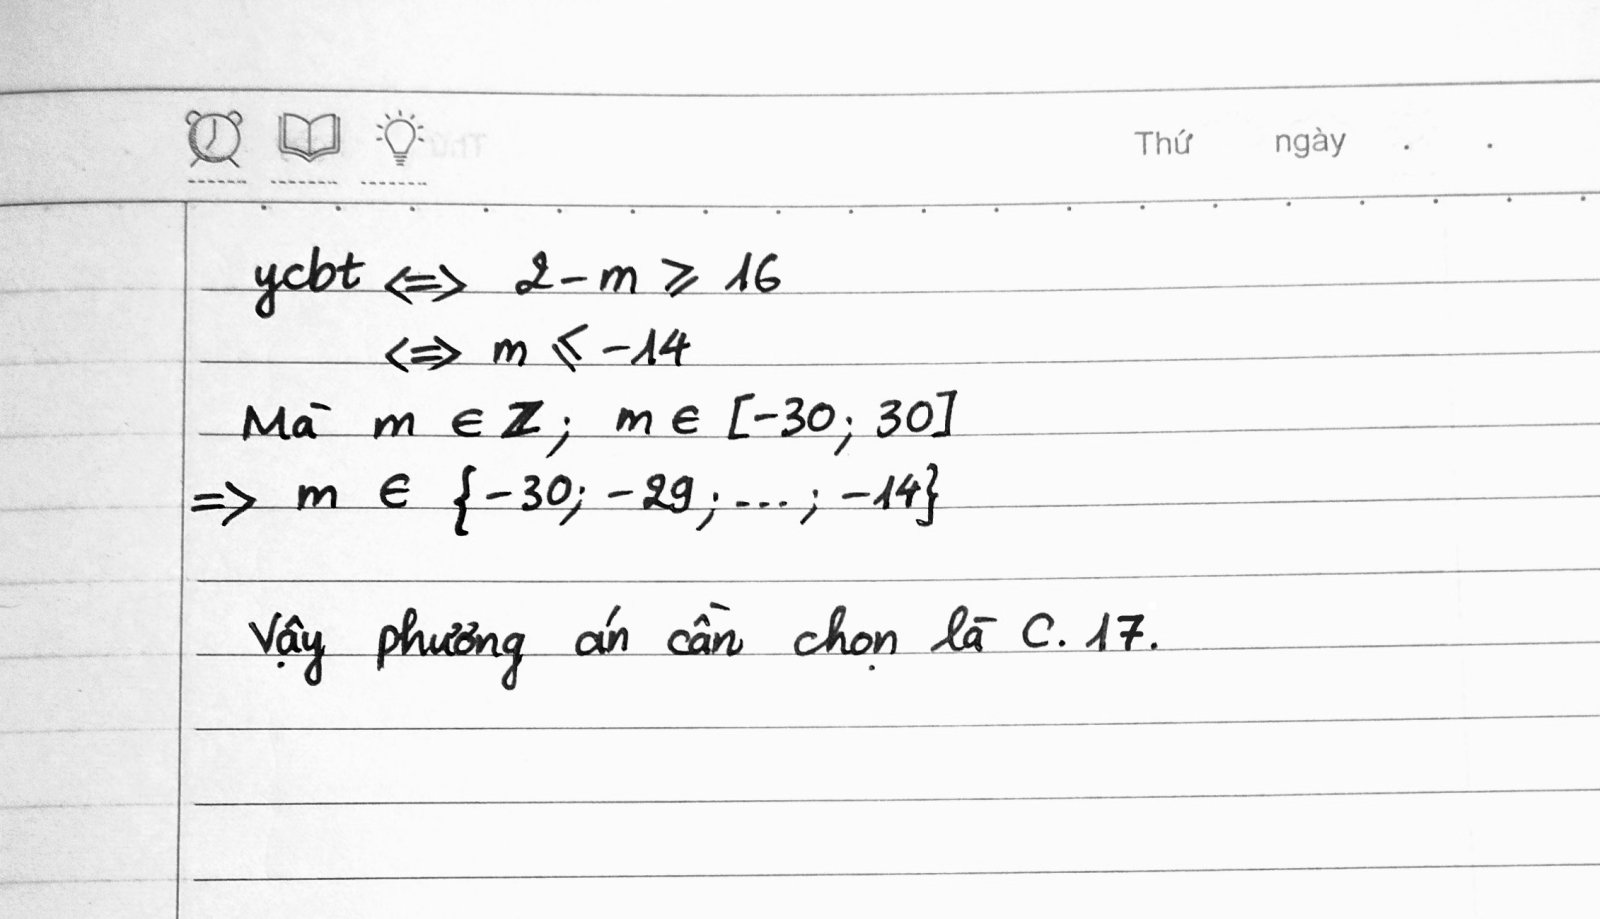 Thứ ngày . .
ycbt <=> 2 - m ⩾ 16
<=> m ⩽ -14
Mà m ∈ ℤ; m ∈ [-30; 30]
=> m ∈ {-30; -29; ...; -14}
Vậy phương án cần chọn là C. 17.